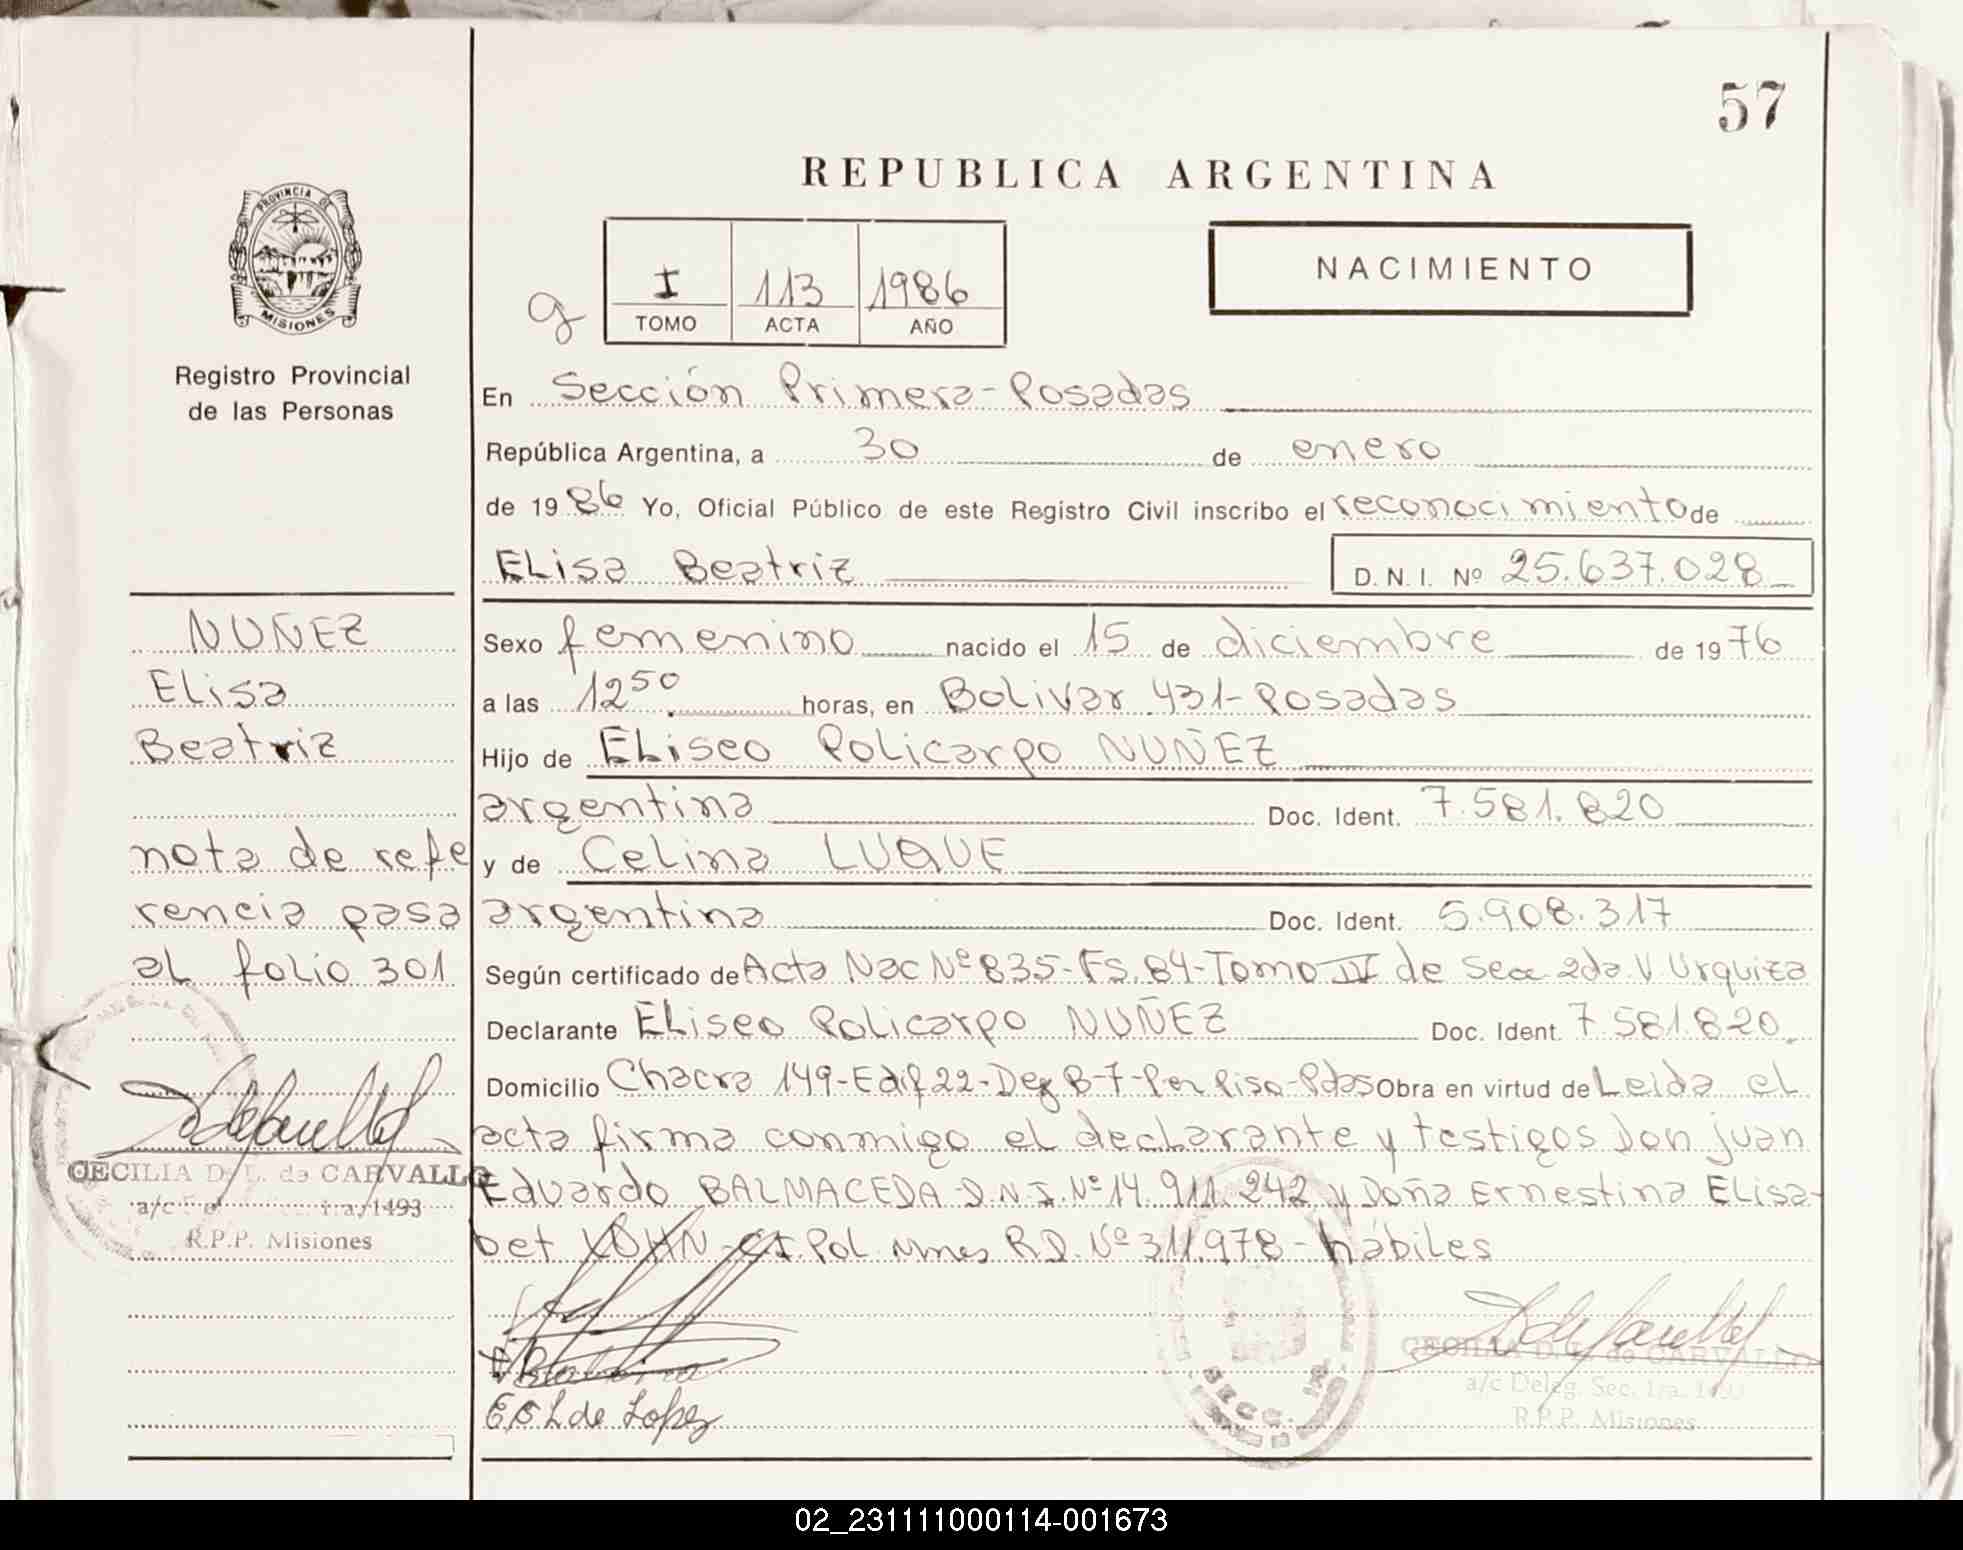 57
REPUBLICA ARGENTINA
PROVINCIA DE
MISIONES
I 113 1986
TOMO ACTA AÑO
NACIMIENTO
Registro Provincial
de las Personas
En Sección Primera-Posadas
República Argentina, a 30 de enero
de 1986 Yo, Oficial Público de este Registro Civil inscribo el reconocimiento de
Elisa Beatriz D.N.I. Nº 25.637.028
NUÑEZ
Elisa
Beatriz
nota de refe
rencia pasa
al folio 301
CECILIA D. L. de CARVALLO
1493
R.P.P. Misiones
Sexo femenino nacido el 15 de diciembre de 1976
a las 12 50 horas, en Bolivar 431-Posadas
Hijo de Eliseo Policarpo NUÑEZ
argentina Doc. Ident. 7.581.820
y de Celina LUQUE
argentina Doc. Ident. 5.908.317
Según certificado de Acta Nac Nº 835-Fs.84-Tomo IV de Sec 2da V Urquiza
Declarante Eliseo Policarpo NUÑEZ Doc. Ident. 7.581.820
Domicilio Chacra 149-Edif 22- B-7-Per Piso-Pdas Obra en virtud de Leida el
acta firma conmigo el declarante y testigos Don juan
Eduardo BALMACEDA-D.N.I. Nº 14.911.242 y Doña Ernestina Elisa-
bet Pol. Mnes R.D. Nº 311.978-hábiles
E B L de Lopez
SECC. 1ra
CECILIA D. L. de CARVALLO
a/c Deleg. Sec. 1ra. 1493
R.P.P. Misiones
02_231111000114-001673